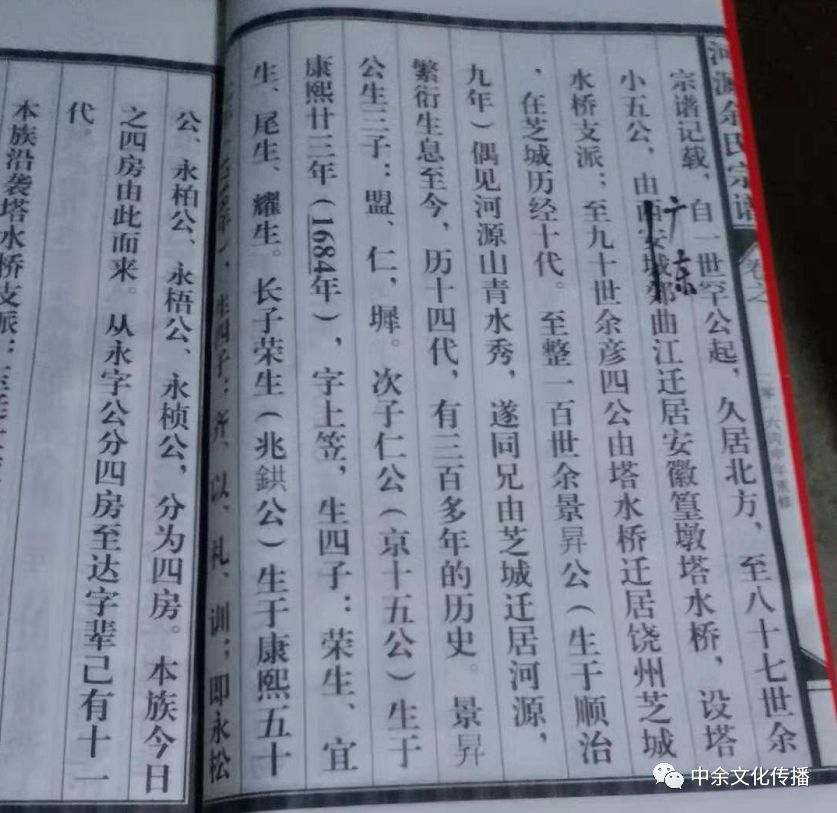 河源余氏宗谱
卷之
二零一六丙申年重修
宗谱记载，自一世罕公起，久居北方，至八十七世余
小五公，由西安城郊曲江迁居安徽篁墩塔水桥，设塔
广东
水桥支派；至九十世余彦四公由塔水桥迁居饶州芝城
，在芝城历经十代。至整一百世余景昇公（生于顺治
九年）偶见河源山青水秀，遂同兄由芝城迁居河源，
繁衍生息至今，历十四代，有三百多年的历史。景昇
公生三子：盟、仁、墀。次子仁公（京十五公）生于
康熙廿三年（1684年），字上笠，生四子：荣生、宜
生、尾生、耀生。长子荣生（兆鉷公）生于康熙五十
，生四子：齐、以、礼、训；即永松
公、永柏公、永梧公、永桢公，分为四房。本族今日
之四房由此而来。从永字公分四房至达字辈己有十一
代。
本族沿袭塔水桥支派；
中余文化传播